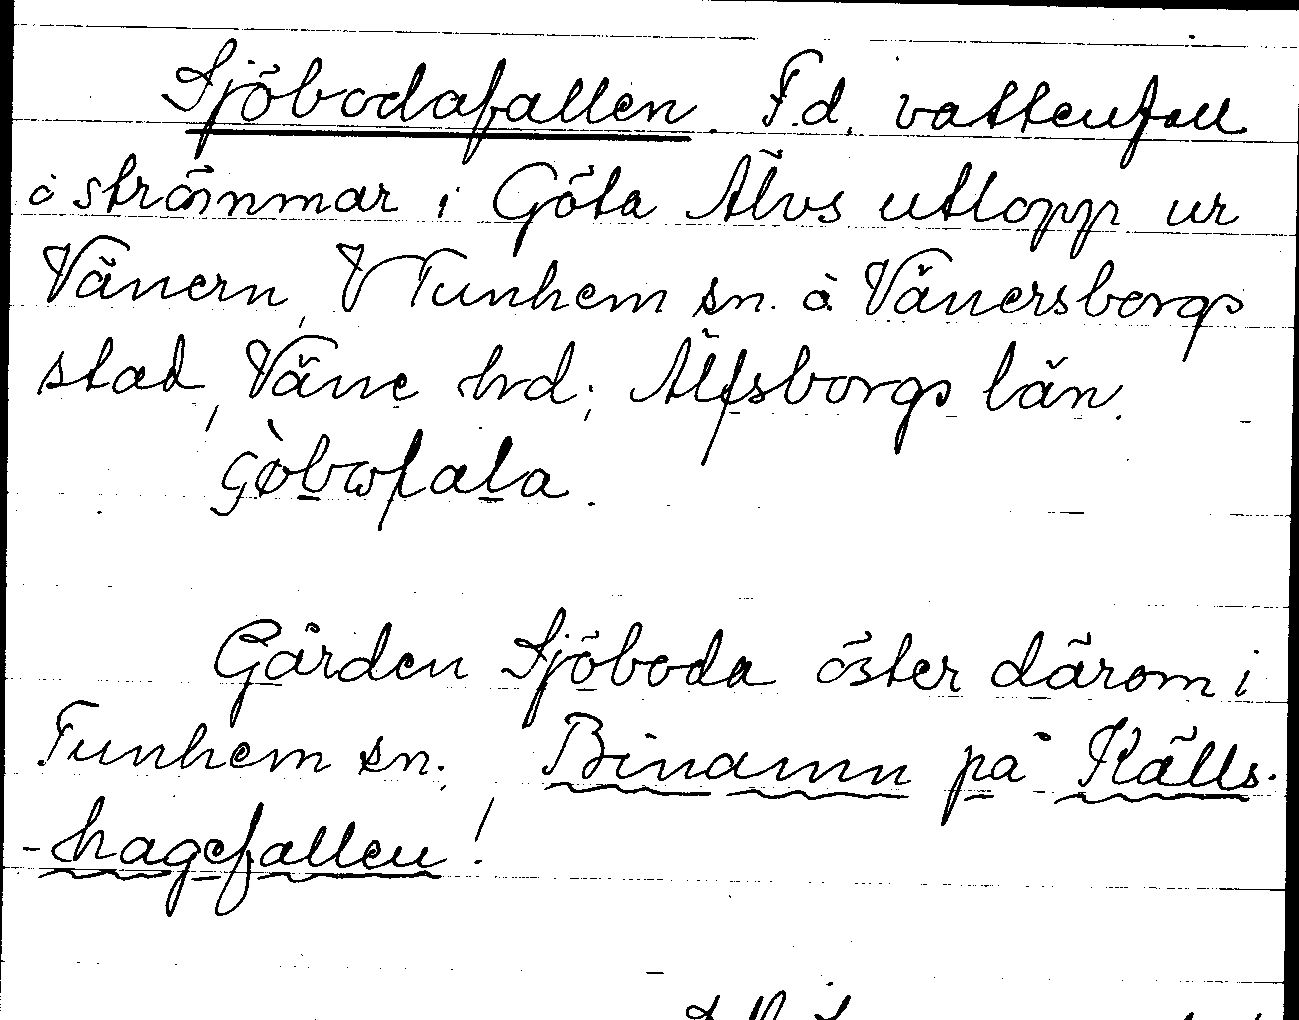 Sjöbodafallen. F.d. vattenfall
å strömmar i Göta Älvs utlopp ur
Vänern, V Tunhem sn. å Vänersborgs
stad, Väne hd; Älfsborgs län.
Gården Sjöboda öster därom i
Tunhem sn. Binamn på Källs-
-hagefallen!